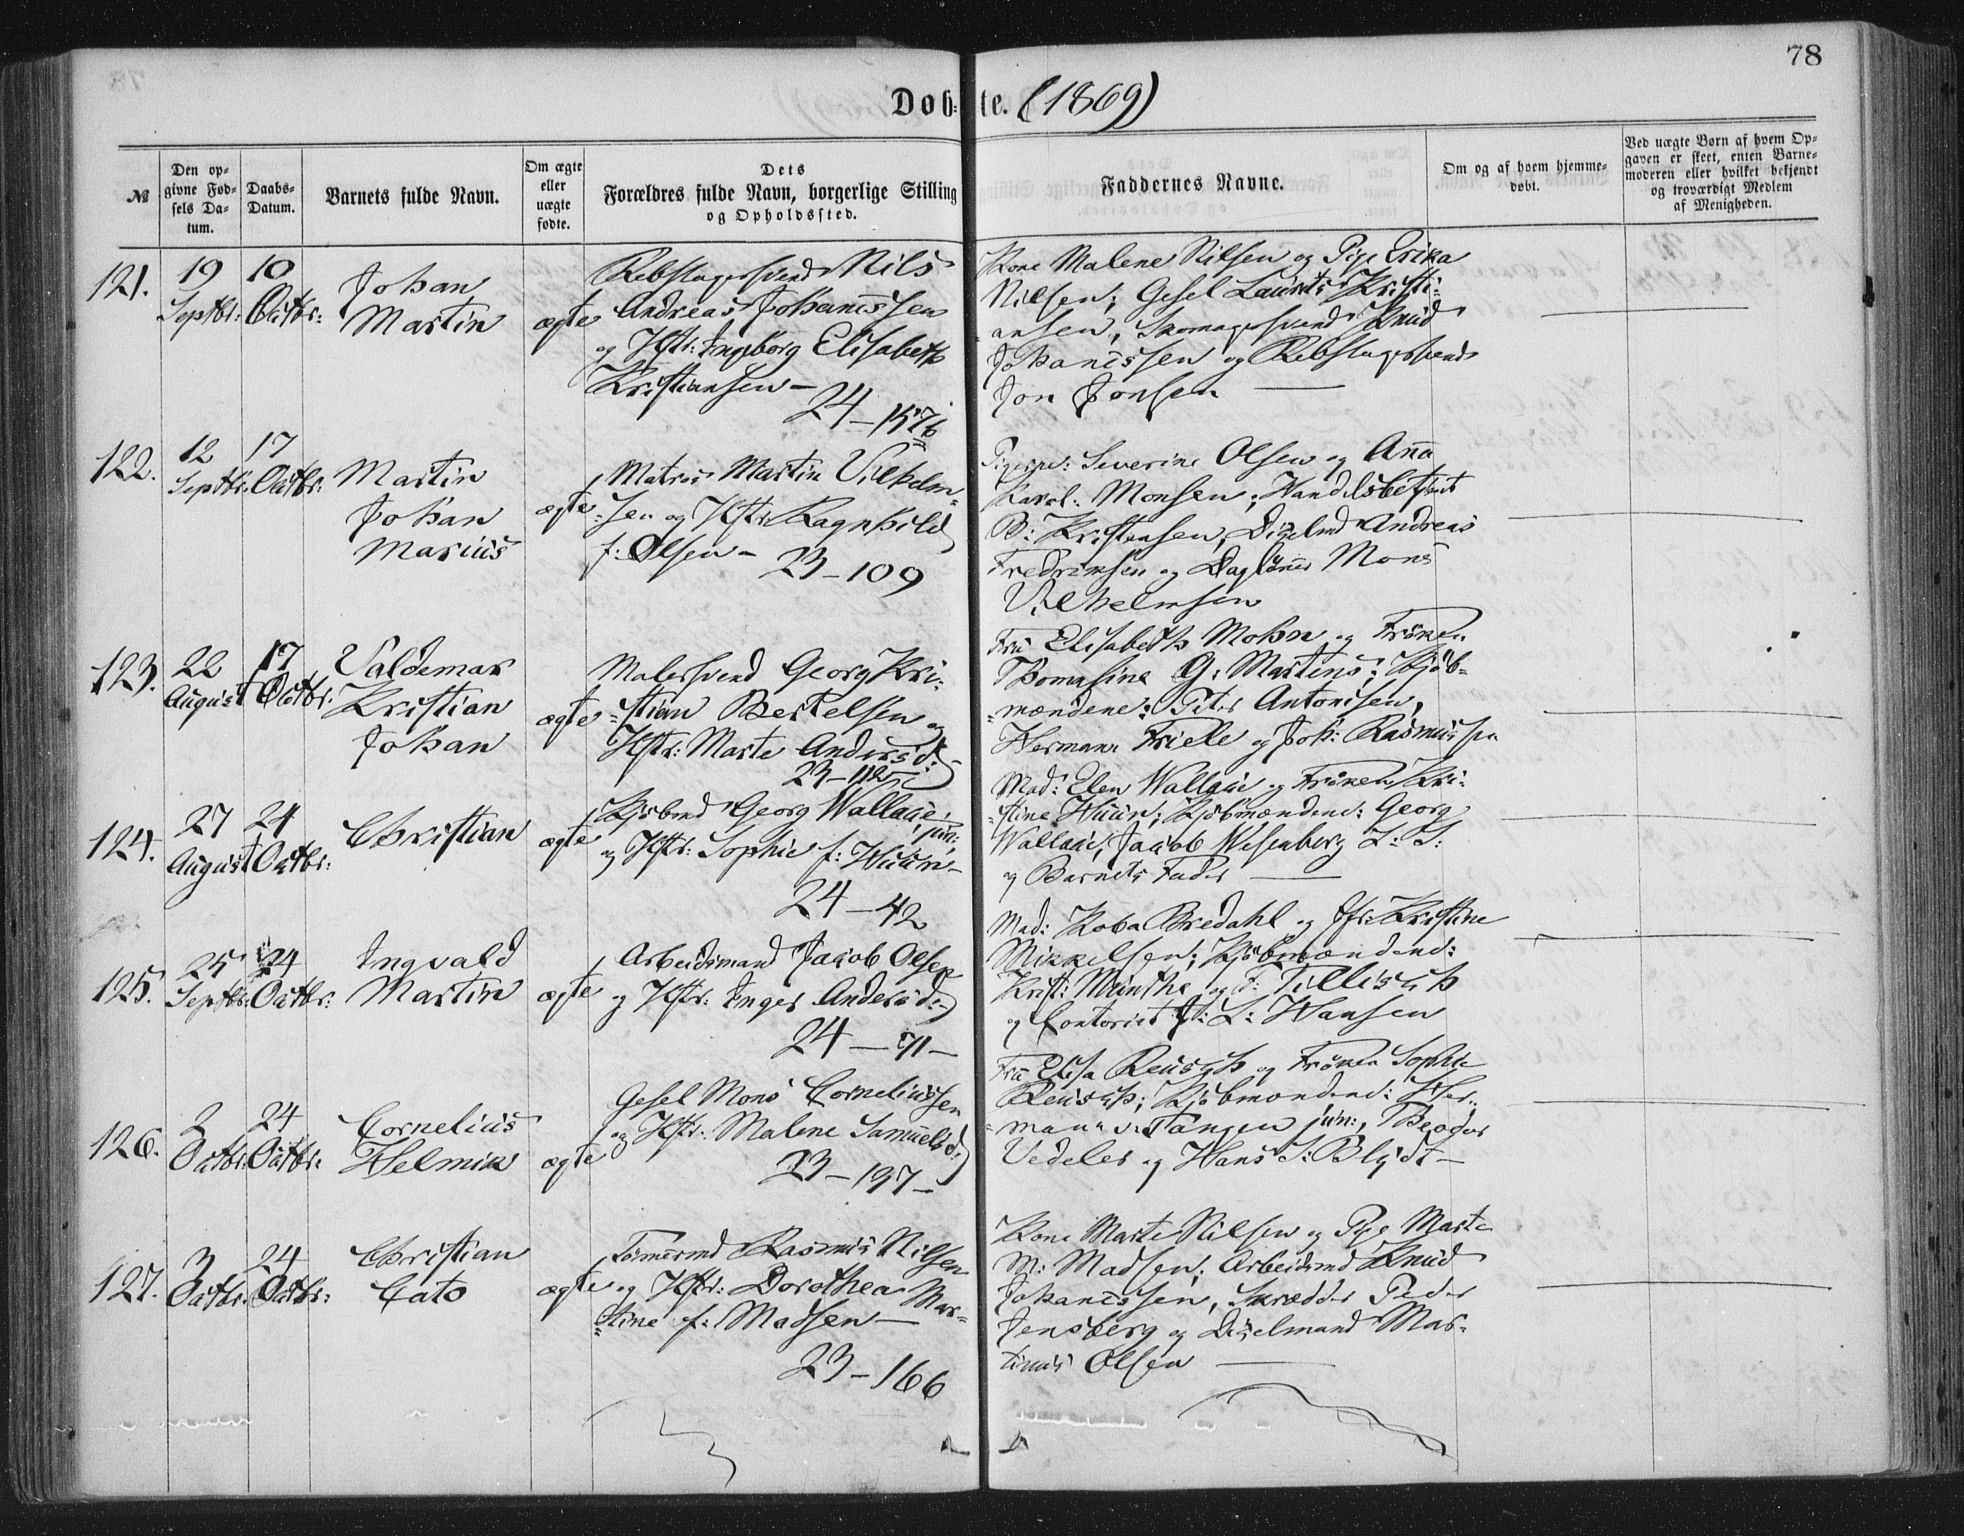 78
Døb-te. (1869)
№
Den op-
givne Fød-
sels Da-
tum.
Daabs-
Datum.
Barnets fulde Navn.
Om ægte
eller
uægte
fødte.
Dets
Forældres fulde Navn, borgerlige Stilling
og Opholdssted.
Faddernes Navne.
Om og af hvem hjemme-
døbt.
Ved uægte Børn af hvem Op-
gaven er skeet, enten Barne-
moderen eller hvilket bekjendt
og troværdigt Medlem
af Menigheden.
121.
19
Septbr:
10
Octbr:
Johan
Martin
ægte
Rebslagersvend Nils
Andreas Johanessen
og Hstr: Ingeborg Elisabeth
Kristiansen —
24 — 157b
Kone Malene Nilsen og Pige Erika
Nilsen; Gesel Laurits Kristi-
ansen, Skomagersvend Knud
Johanessen og Rebslagersvend
Jon Jonsen —
122.
12
Septbr.
17
Octbr:
Martin
Johan
Marius
ægte
Matros Martin Vilhelm-
sen og Hstr. Ragnhild
f: Olsen —
23 — 109
Pigerne: Severine Olsen og Anna
Karol: Monsen; Handelsbetjent
B: Kristensen, Dixelmd Andreas
Fredriksen og Dagløner Mons
Vilhelmsen
123.
22
August
17
Octbr.
Valdemar
Kristian
Johan
ægte
Malersvend Georg Kri-
stian Bertelsen og
Hstr: Marte Andersd:
23 — 112
Fru Elisabeth Mohn og Frøken
Thomasine G: Martens; Kjøb-
mændene: Peter Antonisen,
Hermann Friele og Joh: Rasmussen
124.
27
August
24
Octbr:
Christian
ægte
Kjøbmd Georg Wallace, jun:
og Hstr: Sophie f: Huun —
24 — 42
Mad: Elen Wallace og Frøken Kri-
stine Huun; Kjøbmændene: Georg
Wallace, Jacob Wesenberg L: S:
og Barnets Fader —
125.
25
Septbr:
24
Octbr:
Ingvald
Martin
ægte
Arbeidsmand Jacob Olsen
og Hstr: Inger Andersd:
24 — 71 —
Mad: Koba Bredahl og Jfr: Kristine
Mikkelsen; Kjøbmændene:
Krist: Munthe og F: Tillisch
og Contorist J: L: Hansen
126.
2
Octbr:
24
Octbr:
Cornelius
Helmik
ægte
Gesel Mons Corneliussen
og Hstr: Malene Samuelsd:
23 — 137 —
Fru Elisa Reusch og Frøken Sophie
Reusch; Kjøbmændene: Her-
mann v: Tangen jun:, Theodor
Vedeler og Hans S: Blydt —
127.
3
Octbr.
24
Octbr:
Christian
Cato
ægte
Tømermd Rasmus Nilsen
og Hstr: Dorothea Mar-
tine f: Madsen —
23 — 166
Kone Marte Nilsen og Pige Marte
M: Madsen; Arbeidsmd Knud
Johanessen, Skrædder Peder
Jensberg og Dixelmand Mar-
tinus Olsen —